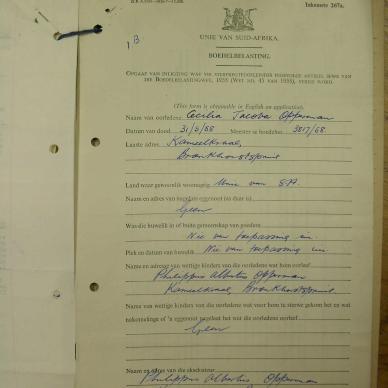 Inkomste 267a.
1B
UNIE VAN SUID-AFRIKA.
BOEDELBELASTING.
(This form is obtainable in English on application.)
Naam van oorledene Cecilia Jacoba Opperman
Datum van dood 31/5/58 Meester se boedelno. 3817/58
Laaste adres Kameelkraal,
Bronkhorstspruit
Land waar gewoonlik woonagtig Unie van S.A.
Naam en adres van nagelate eggenoot (as daar is)
Geen
Was die huwelik in of buite gemeenskap van goedere
Nie van toepassing nie.
Plek en datum van huwelik Nie van toepassing nie
Naam en adresse van wettige kinders van die oorledene wat hom oorleef
Philippus Albertus Opperman
Kameelkraal, Bronkhorstspruit
Name van wettige kinders van die oorledene wat voor hom te sterwe gekom het en wat
nakomelinge of 'n eggenoot nagelaat het wat die oorledene oorleef
Geen
Naam en adres van die eksekuteur
Philippus Albertus Opperman